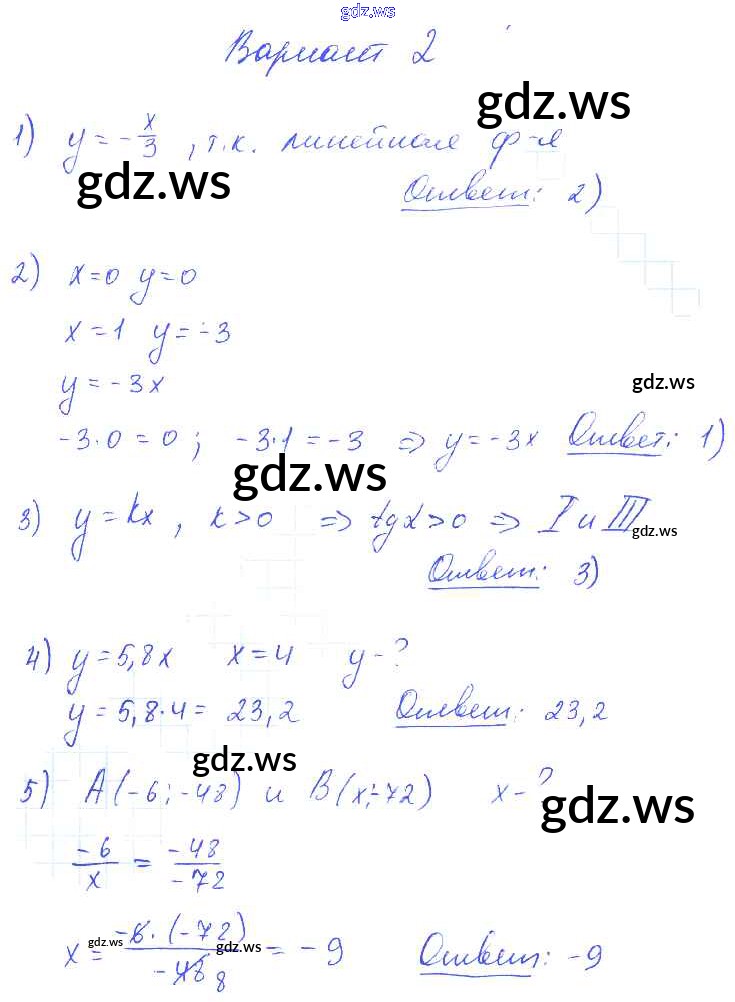 gdz.ws
Вариант 2
gdz.ws
1) y = -x/3, т.к. линейная ф-я
gdz.ws
Ответ: 2)
2) x=0 y=0
x=1 y=-3
y=-3x
gdz.ws
-3·0=0; -3·1=-3 ⇒ y=-3x Ответ: 1)
gdz.ws
3) y=kx, k>0 ⇒ tgα>0 ⇒ I и III
gdz.ws
Ответ: 3)
4) y=5,8x x=4 y-?
y=5,8·4= 23,2 Ответ: 23,2
gdz.ws
5) A(-6;-48) и B(x;-72) x-?
gdz.ws
-6/x = -48/-72
x = -6·(-72)/-48 8 = -9 Ответ: -9
gdz.ws gdz.ws